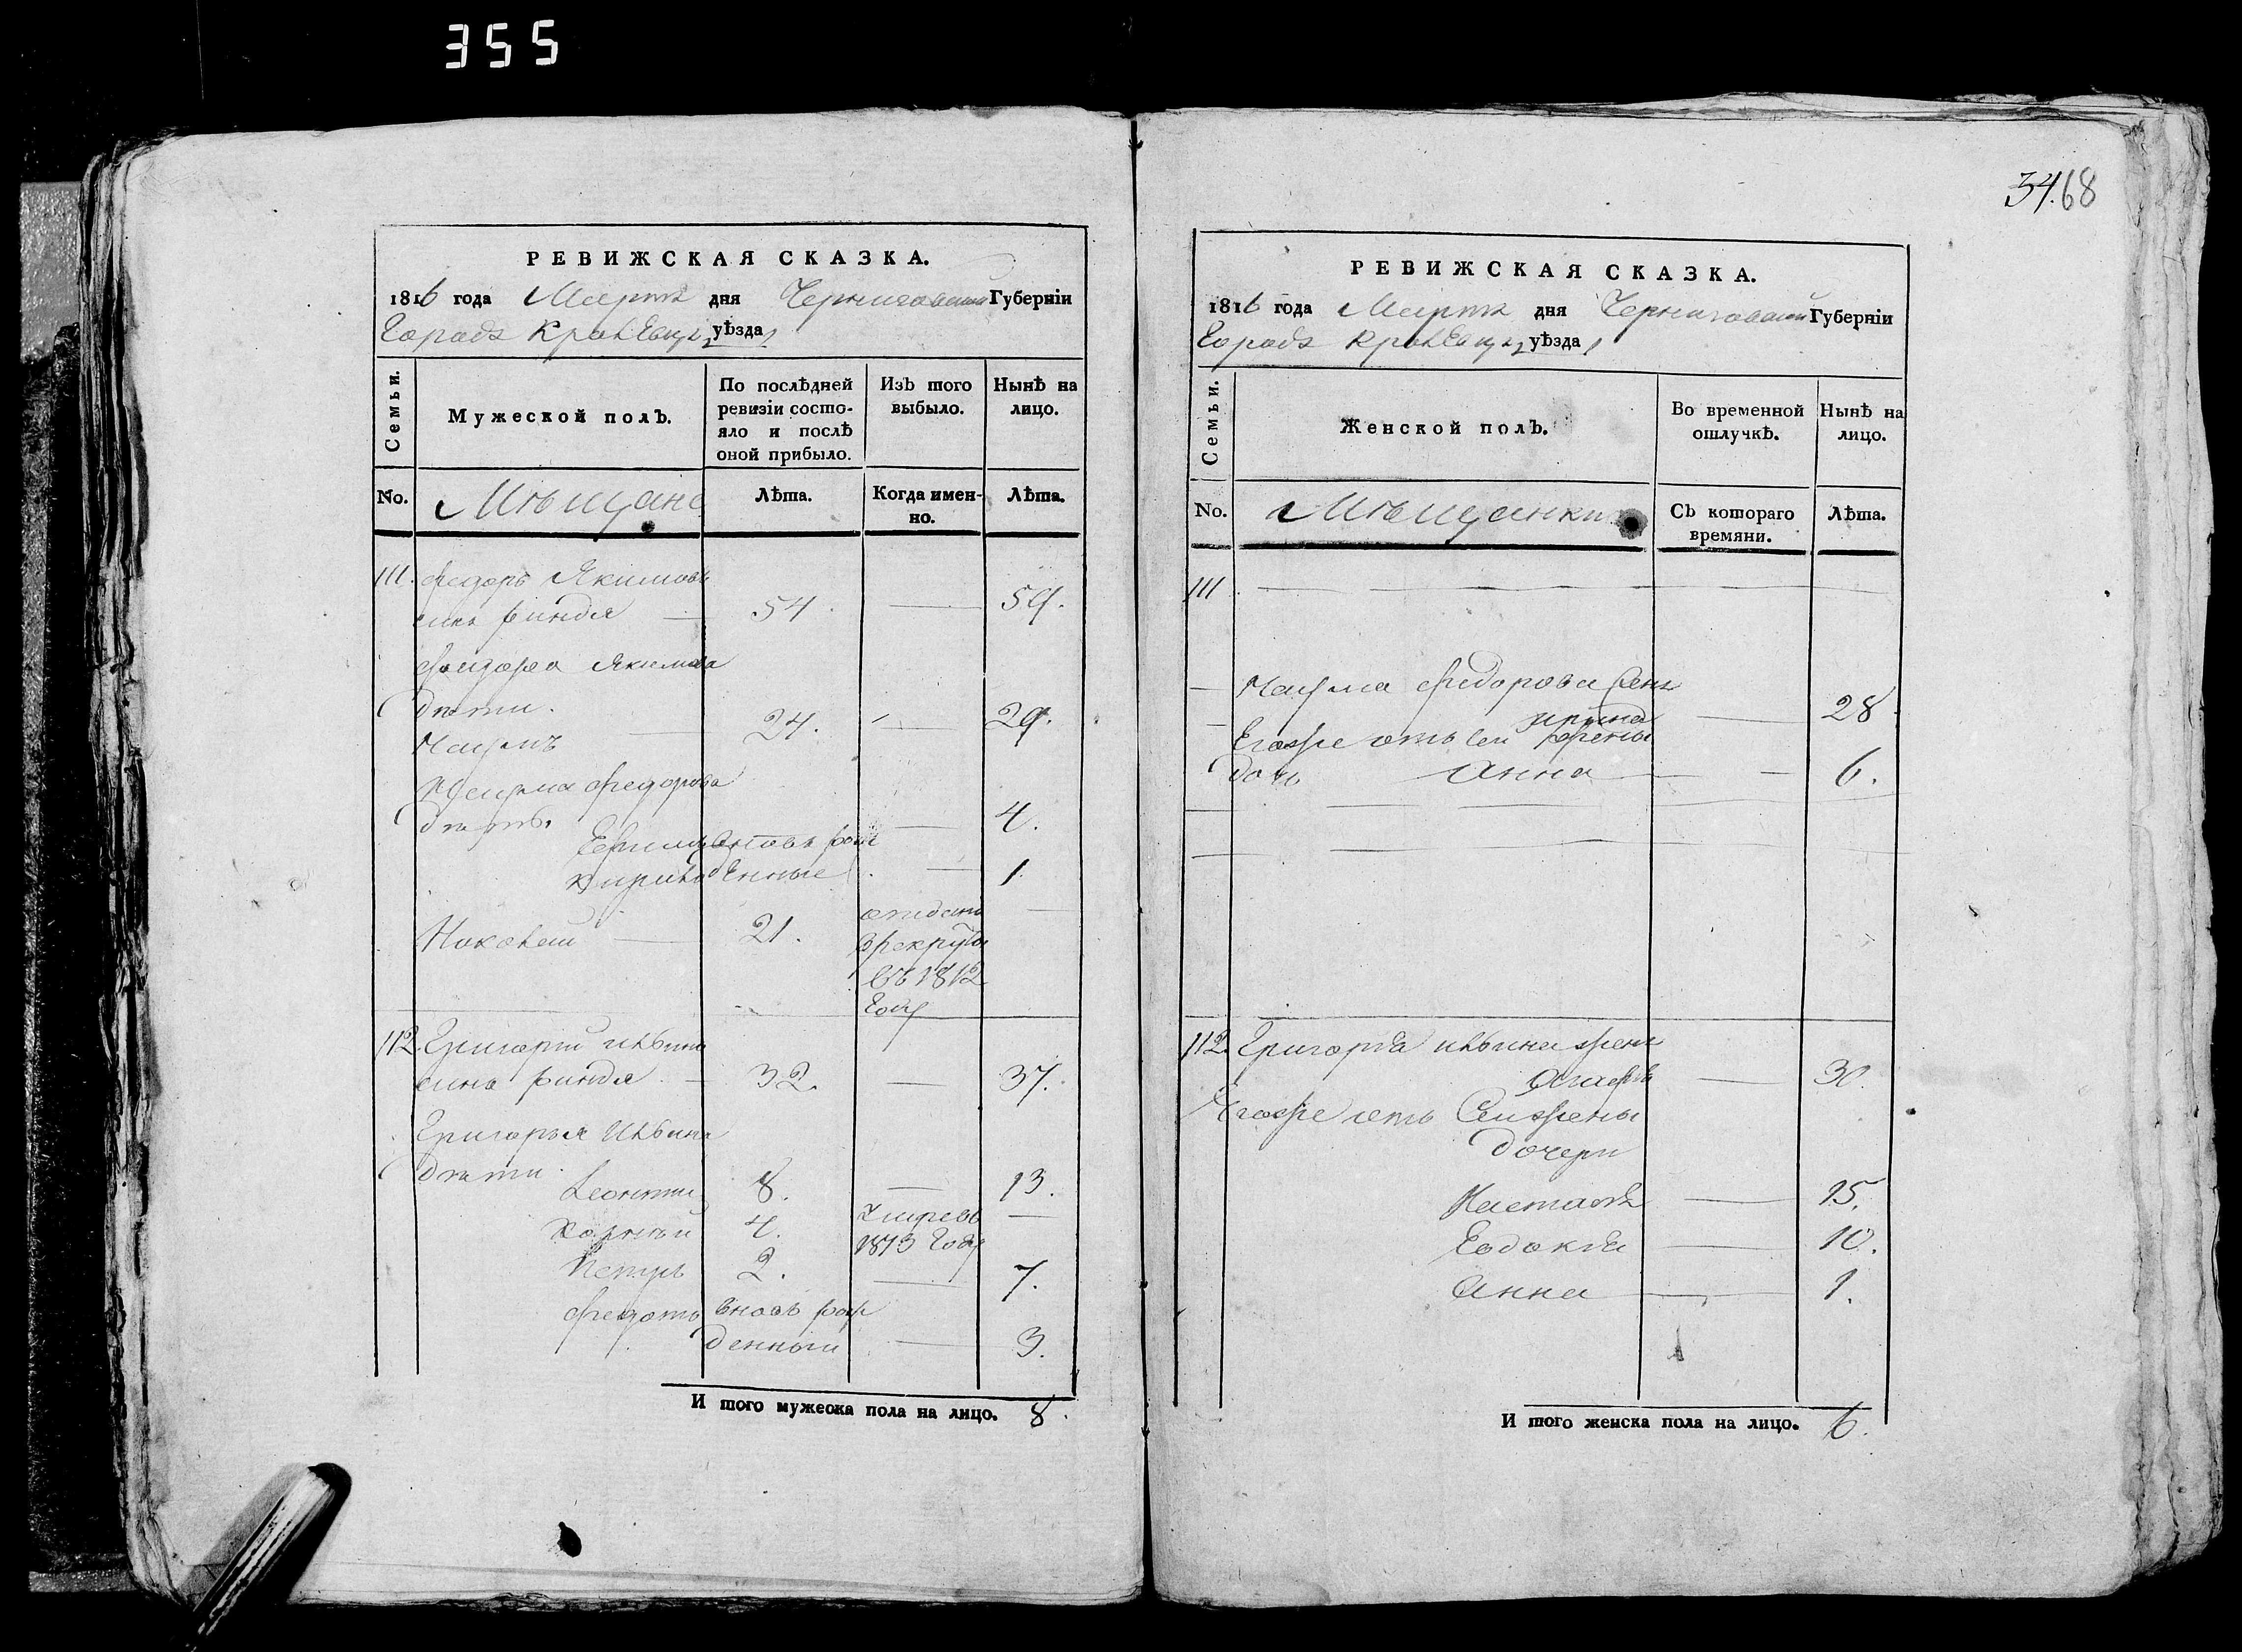 355
34. 68
РЕВИЖСКАЯ СКАЗКА.
1816 года Марта дня Черниговской Губерніи
Города Кролевца уѣзда
Семьи.
Мужеской полъ.
По послѣдней ревизіи состояло и послѣ оной прибыло.
Изъ того выбыло.
Нынѣ на лицо.
No.
Мѣщане
Лѣта.
Когда именно.
Лѣта.
111. Федоръ Якимовъ
синъ Риндя 54. 59.
Фиодора Якимова
дѣти.
24. 29.
Федорова
дѣти
4.
вновь рож
денные 1
21. отданъ
врекруты
въ 1812
году
112. Григорій Ильинъ
синъ Риндя 32. 37.
Григорья Ильина
дѣти
Леонтій 8. 13.
Корнѣй 4. умре въ
1813 году
Петръ 2. 7.
Федотъ вновь рож
денный 3.
И того мужеска пола на лицо. 8.
РЕВИЖСКАЯ СКАЗКА.
1816 года Марта дня Черниговской Губерніи
Города Кролевца уѣзда
Семьи.
Женской полъ.
Во временной отлучкѣ.
Нынѣ на лицо.
No.
Мѣщанки
Съ котораго времяни.
Лѣта.
111
Федорова жена
Ирина 28
Егоже отъ сей жены
дочь Анна 6.
112. Григорія Ильина жена
Агафія 30.
Егоже отъ Сей жены
дочери
Настасія 15.
Евдокія 10.
Анна 1.
И того женска пола на лицо. 6.